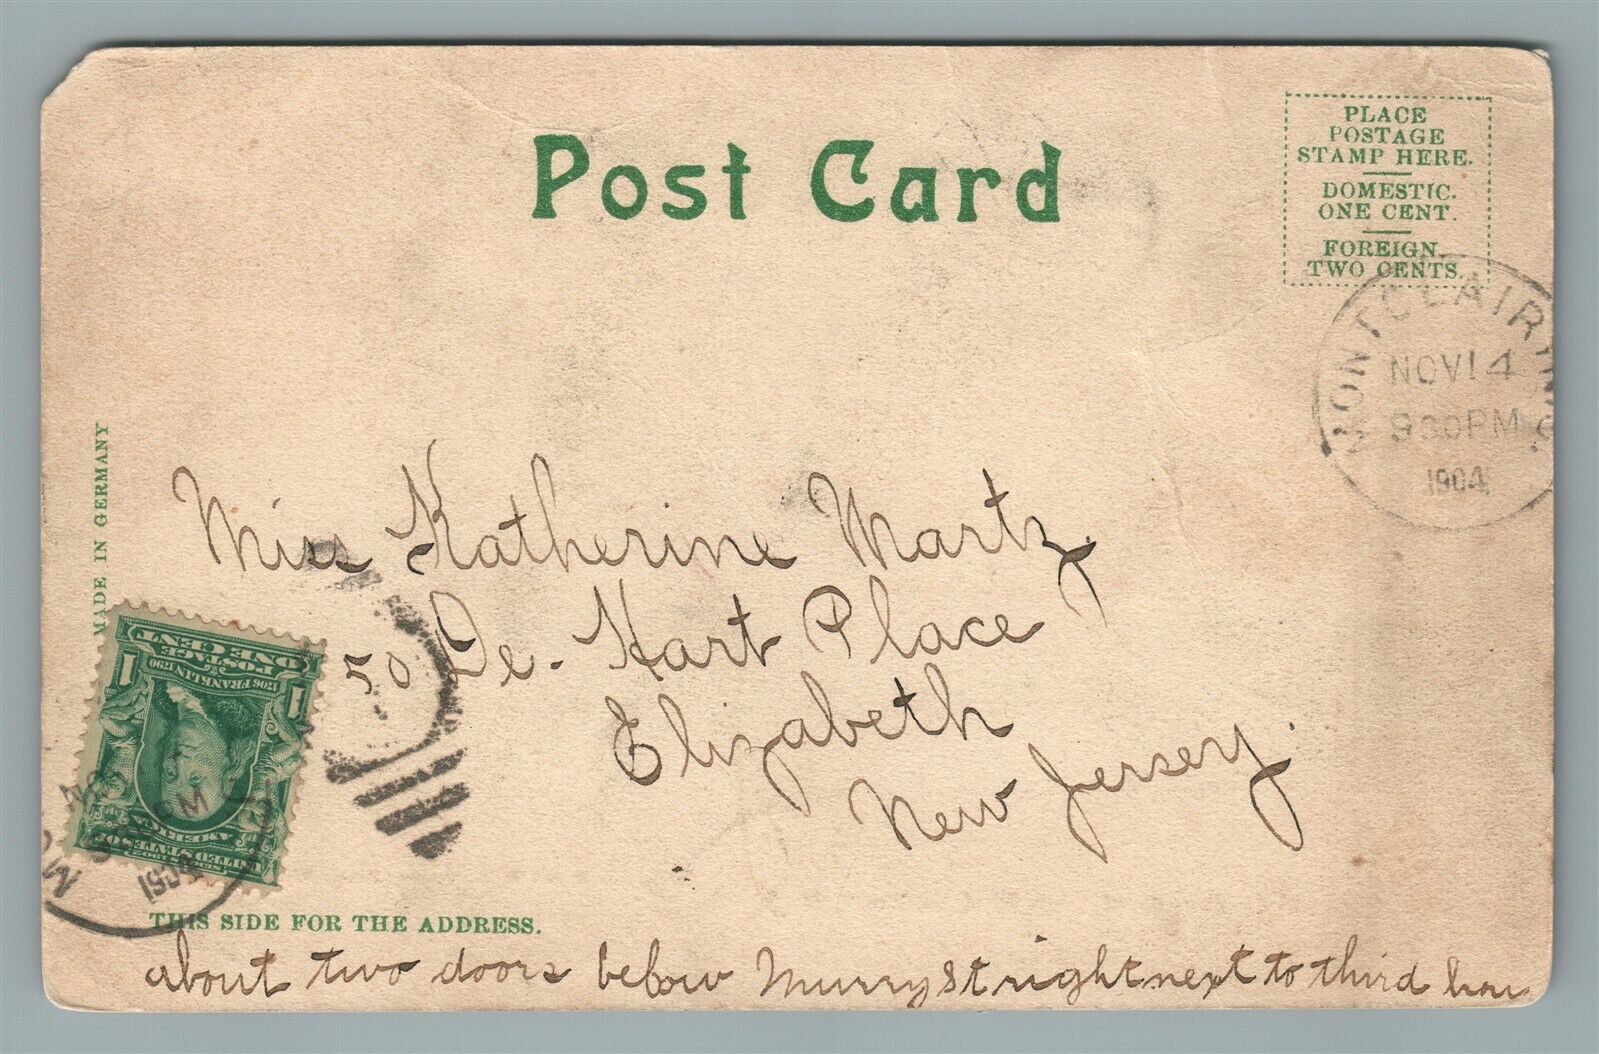 Post Card
PLACE
POSTAGE
STAMP HERE.
DOMESTIC.
ONE CENT.
FOREIGN.
TWO CENTS.
MONTCLAIR, N.J.
NOV 14
930PM
1904
MADE IN GERMANY
Miss Katherine Martz.
50 De-Hart Place
Elizabeth
New Jersey.
ONE CENT
POSTAGE
1706 FRANKLIN 1790
1 1
SERIES 1902
UNITED STATES OF
AMERICA
PM
1904
THIS SIDE FOR THE ADDRESS.
about two doors below Murry St right next to third hou